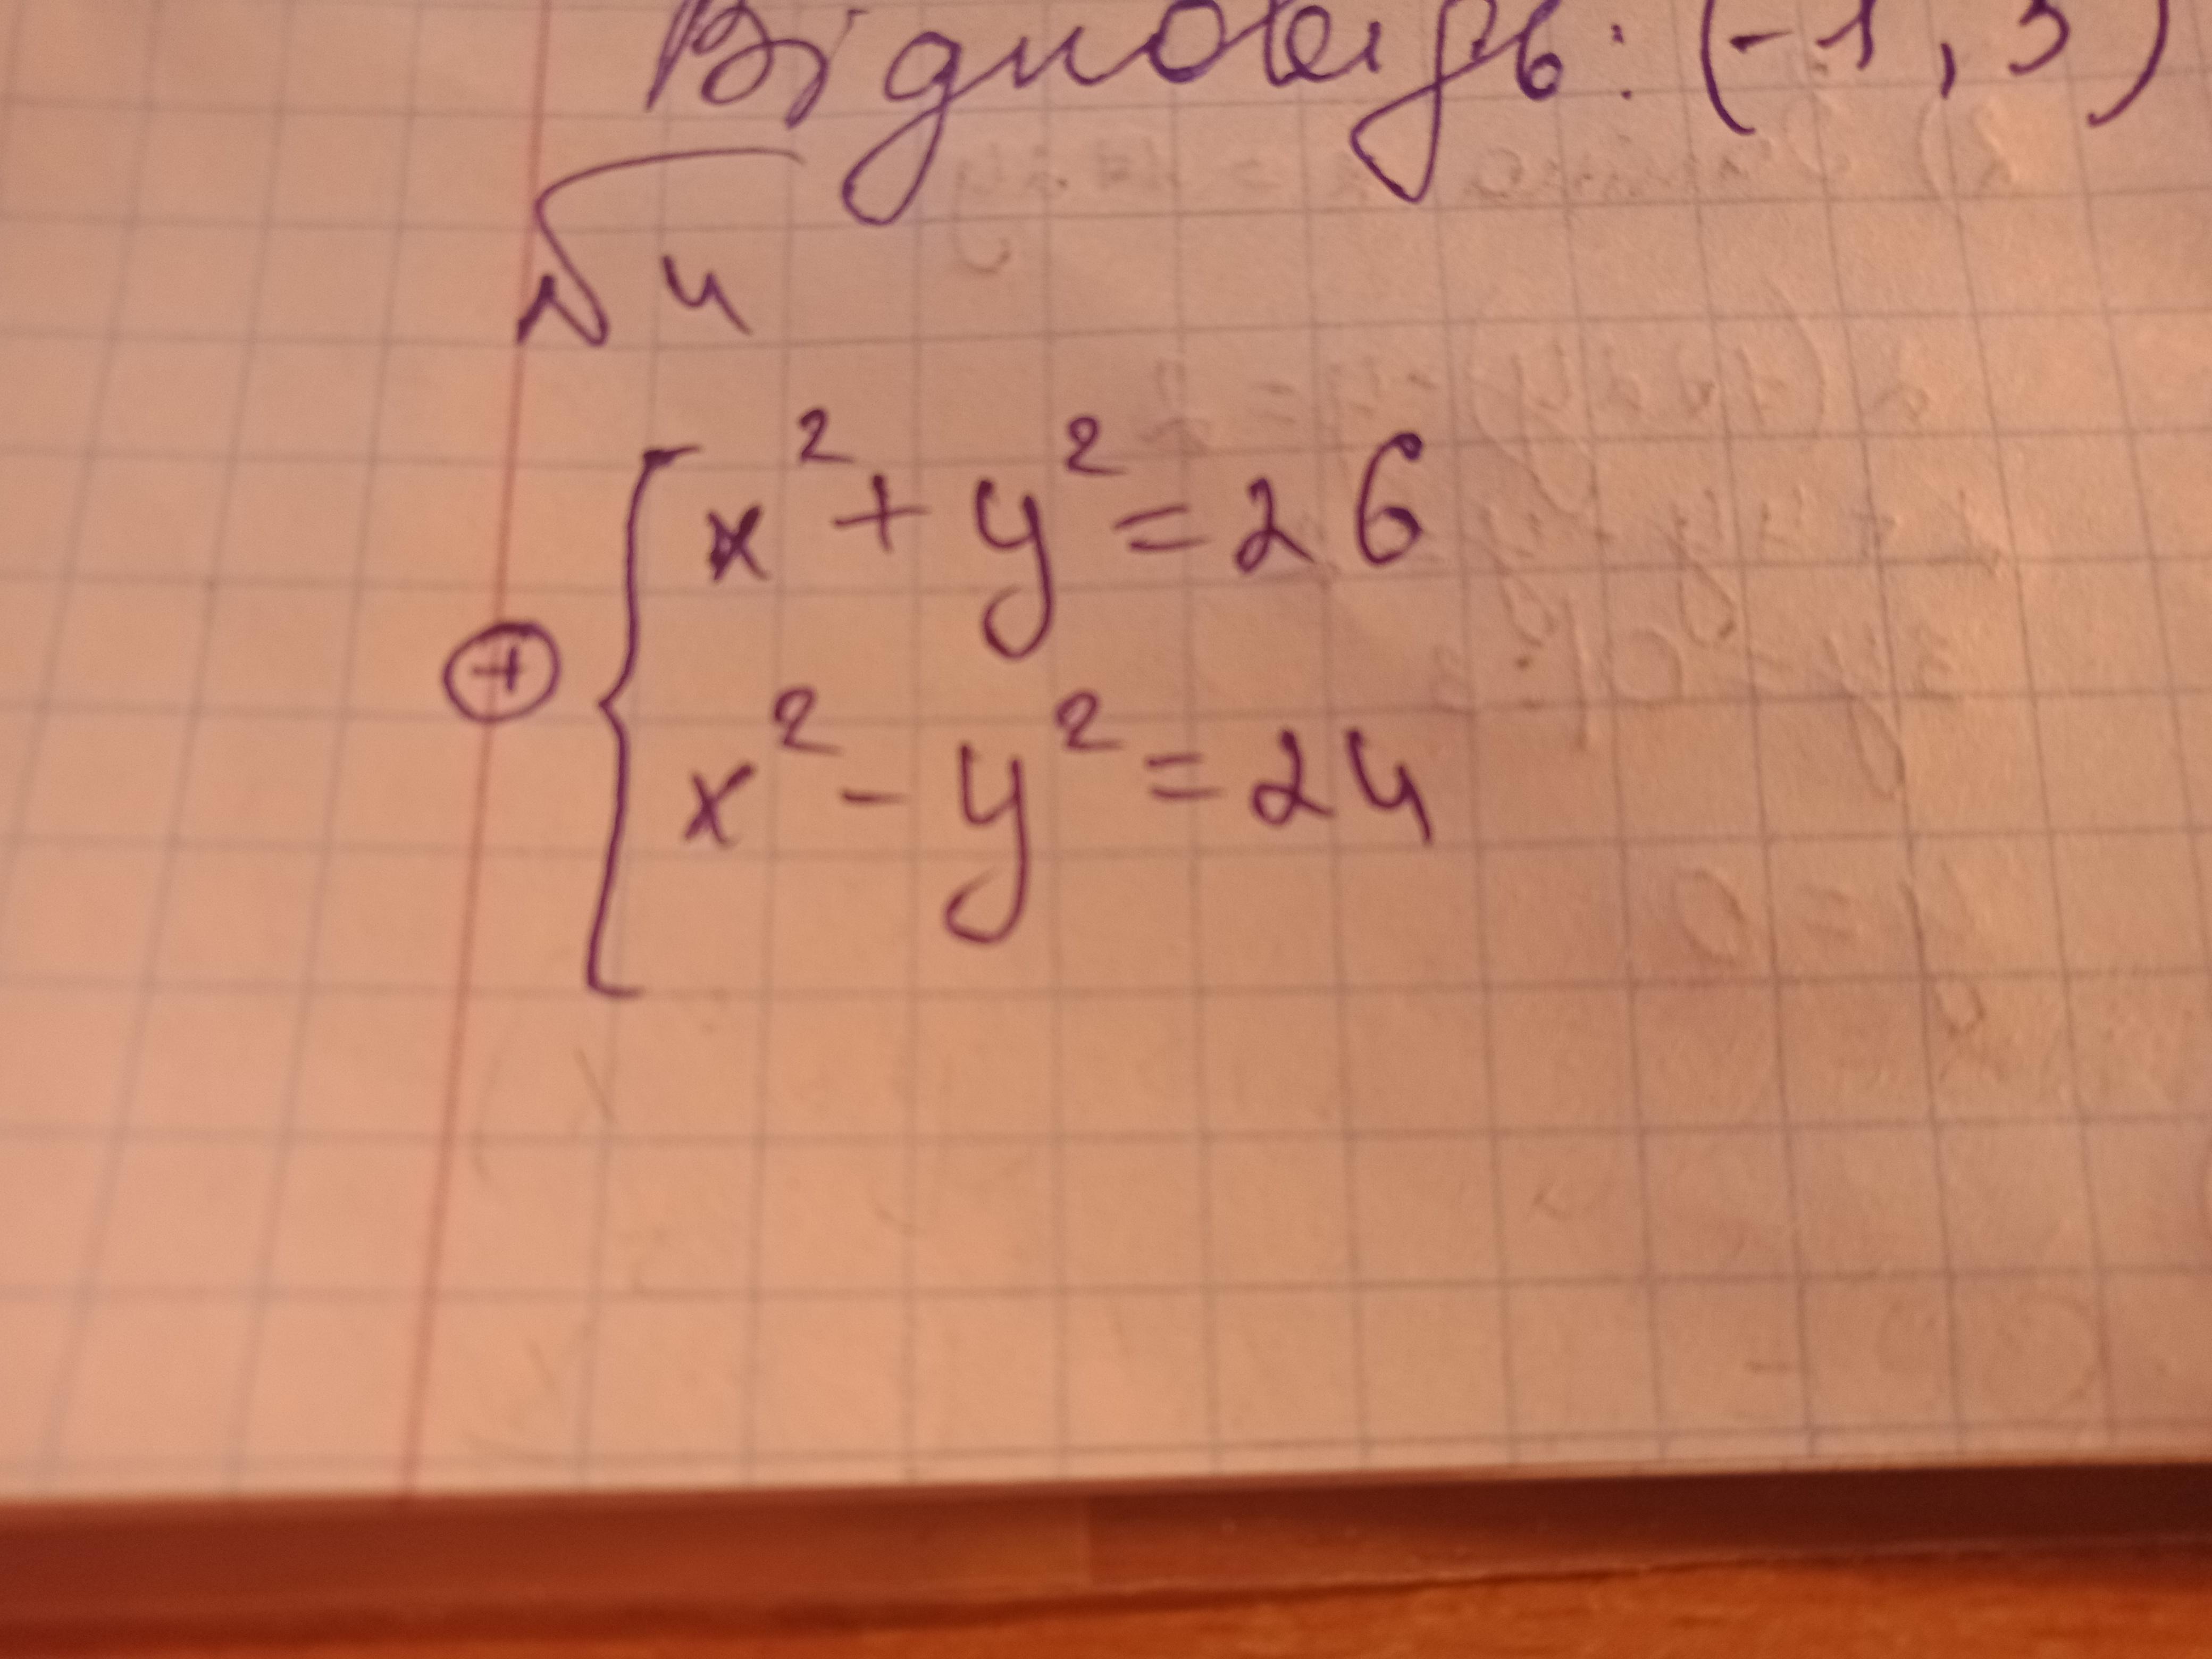 Відповідь: (-1, 3)
√4
x² + y² = 26
⊕
x² - y² = 24